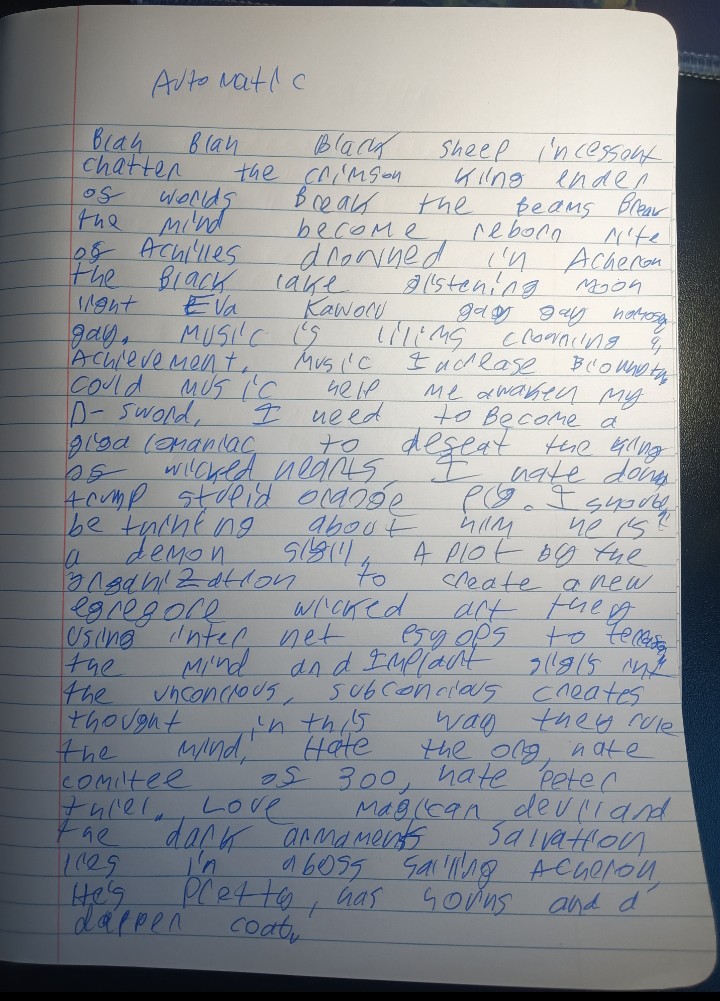 Automatic
Blah Blah Black sheep incessant
chatter the crimson king ender
of worlds Break the Beams Break
the mind become reborn rite
of Achilles drowned in Acheron
the Black lake glistening moon
light Eva Kaworu gay gay
gay. Music is crowning
Achievement. Music Increase
could music help me awaken my
D-sword, I need to Become a
giga lomaniac to defeat the king
of wicked hearts, I hate
trump stupid orange pig. I
be thinking about him he is
a demon sigil, A plot by the
organization to create a new
egregore wicked art they
using inter net psyops to
the mind and Implant sigils
the unconcious, subconcious creates
thought in this way they rule
the mind, Hate the org, hate
comitee of 300, hate Peter
Thiel. Love magical devil and
the dark armaments Salvation
lies in aboss sailing Acheron,
He's Pretty, has horns and a
dapper coat,